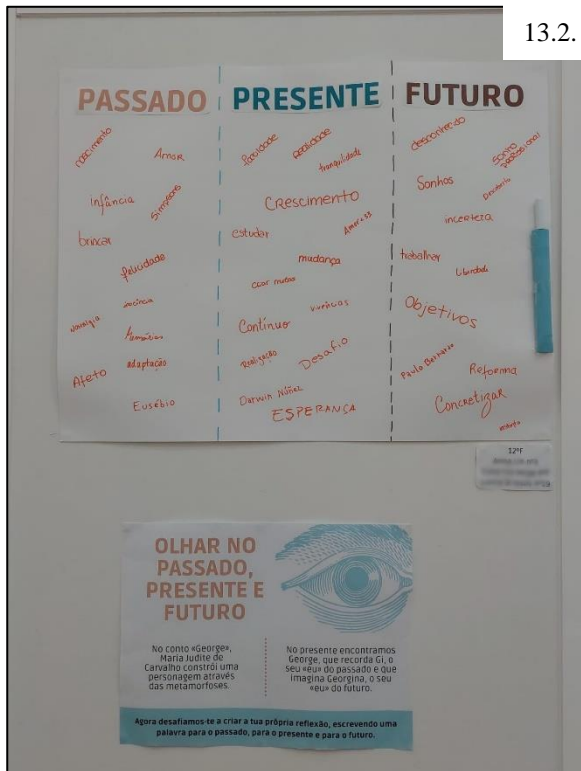 13.2.
PASSADO
nascimento
Amor
Infância
Simpsons
brincar
felicidade
inocência
nostalgia
Memórias
adaptação
Afeto
Eusébio
PRESENTE
felicidade
Realidade
tranquilidade
Crescimento
estudar
mudança
vivências
Contínuo
Realização
Desafio
Darwin Núñez
ESPERANÇA
FUTURO
desconhecido
Sonho profissional
Sonhos
Dinheiro
incerteza
trabalhar
Liberdade
Objetivos
Paulo Bernardo
Reforma
Concretizar
12ºF
OLHAR NO
PASSADO,
PRESENTE E
FUTURO
No conto «George»,
Maria Judite de
Carvalho constrói uma
personagem através
das metamorfoses.
No presente encontramos
George, que recorda Gi, o
seu «eu» do passado e que
imagina Georgina, o seu
«eu» do futuro.
Agora desafiamos-te a criar a tua própria reflexão, escrevendo uma
palavra para o passado, para o presente e para o futuro.